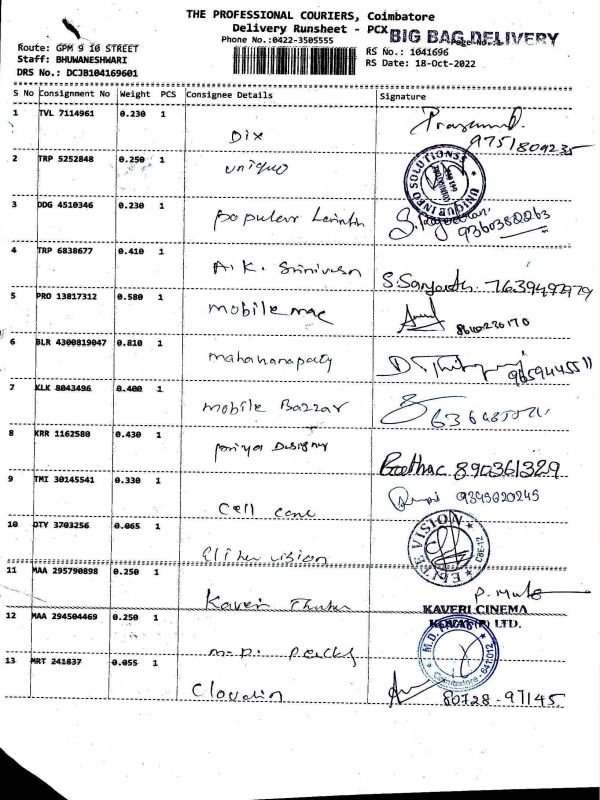 THE PROFESSIONAL COURIERS, Coimbatore
Delivery Runsheet - PCX BIG BAG DELIVERY
Phone No.:0422-3505555
Route: GPM 9 10 STREET
RS No.: 1041696
Staff: BHUWANESHWARI
RS Date: 18-Oct-2022
DRS No.: DCJB104169601
S No Consignment No Weight PCS Consignee Details Signature
1 TVL 7114961 0.230 1
Dix
9751809235
2 TRP 5252848 0.250 1
unique
UNIQUE INFO SOLUTIONSS
3 DDG 4510346 0.230 1
popular
9360380263
4 TRP 6838677 0.410 1
A.K. Srinivasan
S.Sanjeeth 7639497979
5 PRO 13817312 0.580 1
mobile mac
8610270170
6 BLR 4300819047 0.810 1
D
9659445511
7 KLK 8043496 0.400 1
mobile Bazzar
8 KRR 1162580 0.430 1
priya Designer
890361329
9 TMI 30145541 0.330 1
Cell cone
9345620245
10 DTY 3703256 0.065 1
Elite vision
ELITE VISION
CBE-12
11 MAA 295790898 0.250 1
Kaveri
KAVERI CINEMA
KOVAI (P) LTD.
12 MAA 294504469 0.250 1
M.D.
M.D.
Coimbatore - 641012
13 MRT 241837 0.055 1
80728-97145